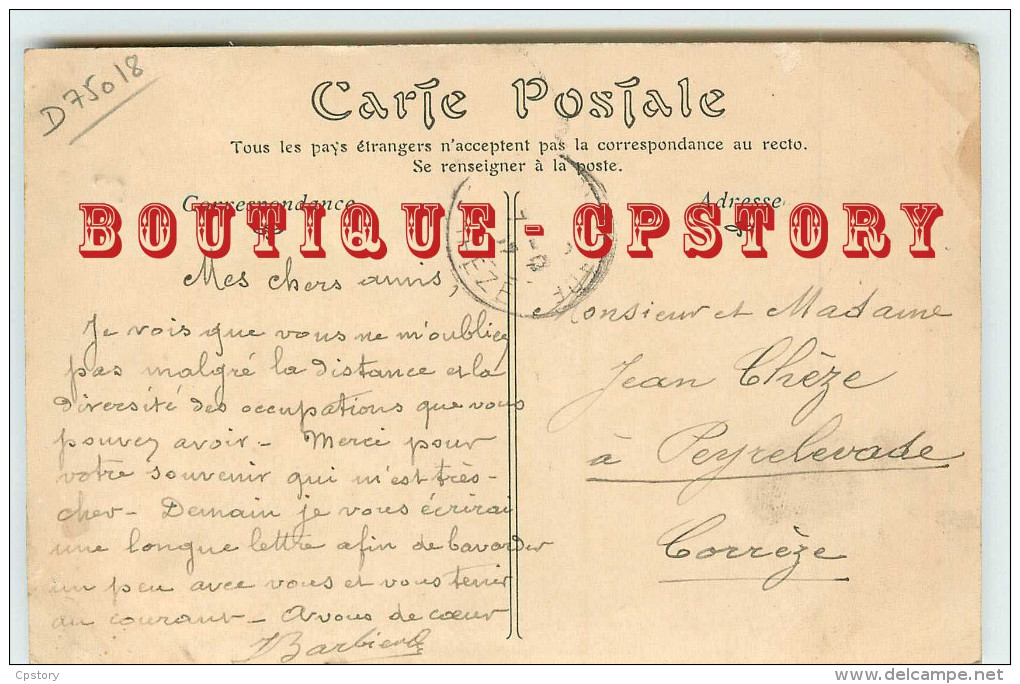 D75018
Carte Postale
Tous les pays étrangers n'acceptent pas la correspondance au recto.
Se renseigner à la poste.
Correspondance
Adresse
BOUTIQUE - CPSTORY
Mes chers amis,
Je vois que vous ne m'oubliez
pas malgré la distance et la
diversité des occupations que vous
pouvez avoir - Merci pour
votre souvenir qui m'est très-
cher - Demain je vous écrirai
une longue lettre afin de bavarder
un peu avec vous et vous tenir
au courant - A vous de cœur
Monsieur et Madame
Jean Chèze
à Peyrelevade
Corrèze
Cpstory
www.delcampe.net